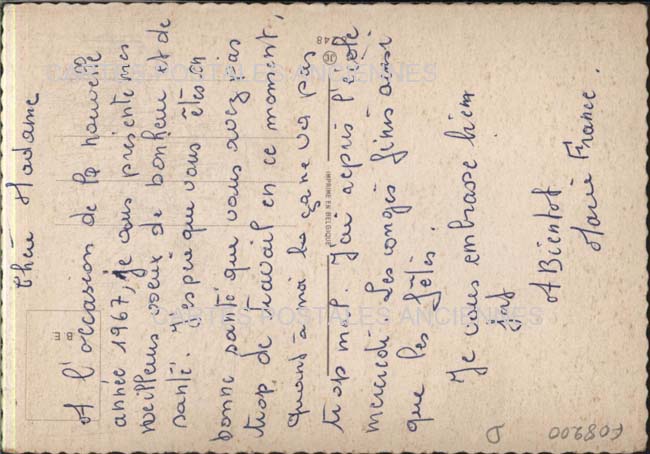 Chère Madame
A l'occasion de la nouvelle
année 1967, je vous présente mes
meilleurs voeux de bonheur et de
santé. J'espère que vous êtes en
bonne santé que vous avez pas
trop de travail en ce moment,
quant à moi ça ne va pas
trop mal. J'ai repris l'école
mercredi. Les congés finis ainsi
que les fêtes.
Je vous embrasse bien
fort
A Bientot
Marie France.
248
IMPRIME EN BELGIQUE
CARTES POSTALES ANCIENNES
CARTES POSTALES ANCIENNES
F08900
D